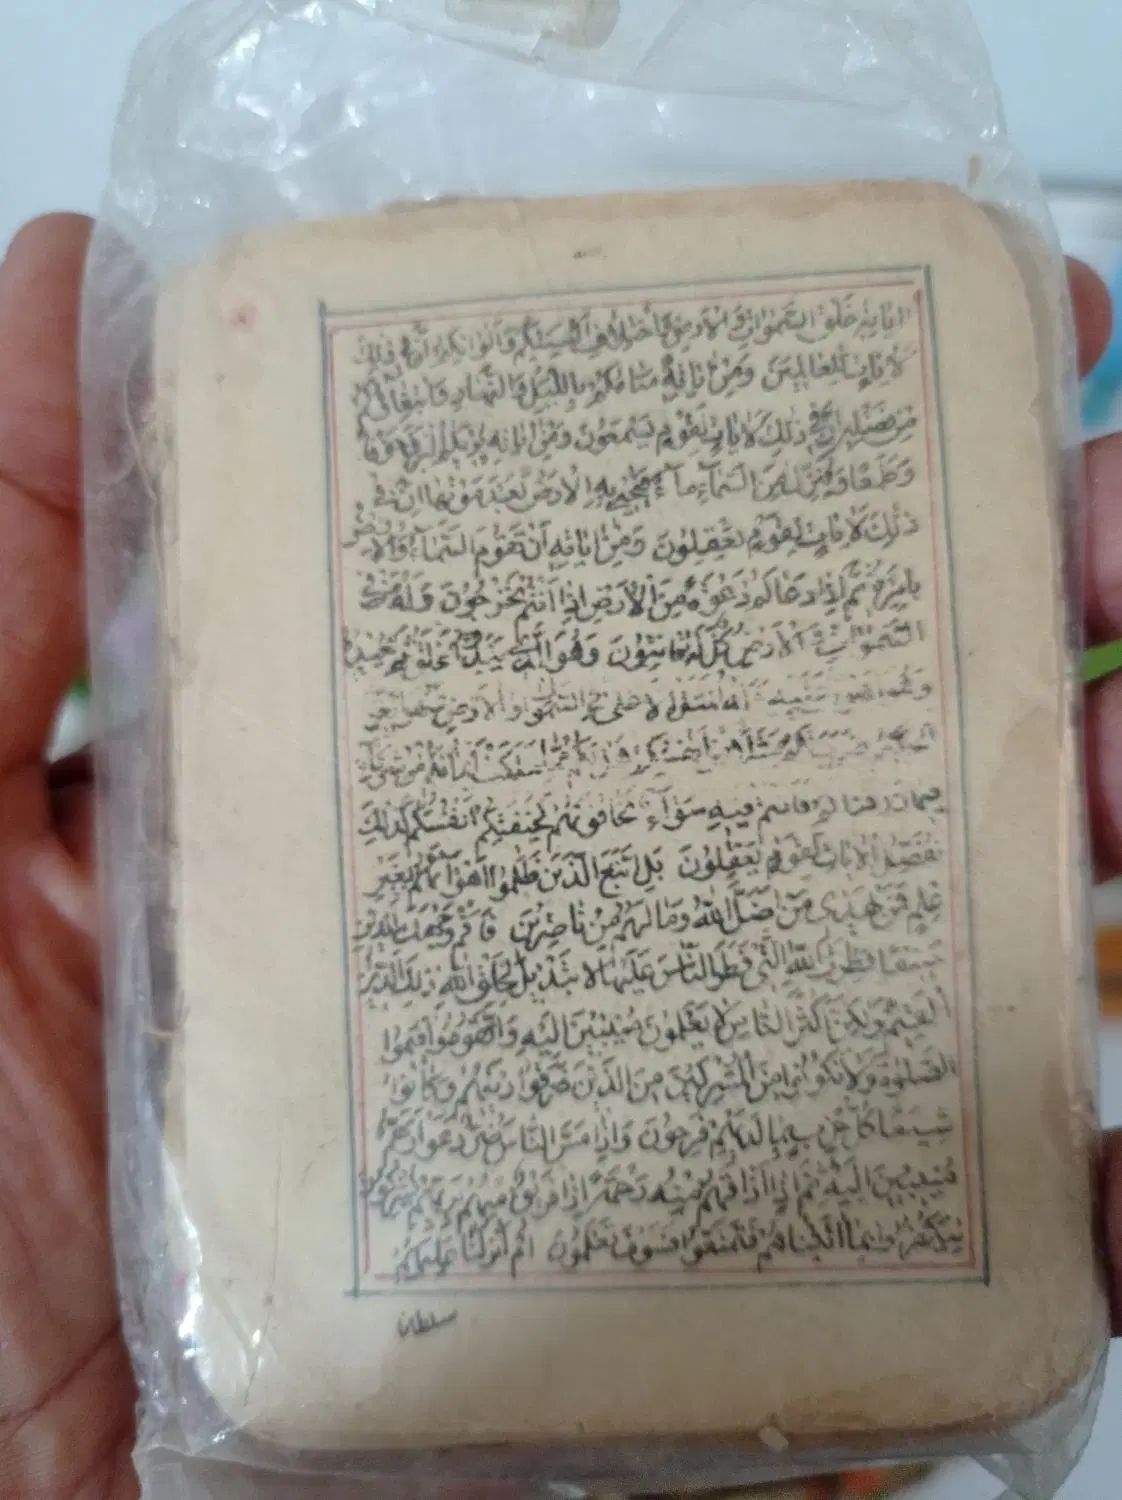 اياته خلق السموات والارض واختلاف السنتكم والوانكم ان في ذلك
لايات للعالمين ومن اياته منامكم بالليل والنهار وابتغاؤكم
من فضله ان في ذلك لايات لقوم يسمعون ومن اياته يريكم البرق خوفا
وطمعا وينزل من السماء ماء فيحيي به الارض بعد موتها ان في
ذلك لايات لقوم يعقلون ومن اياته ان تقوم السماء والارض
بامره ثم اذا دعاكم دعوة من الارض اذا انتم تخرجون وله من في
السموات والارض كل له قانتون وهو الذي يبدؤا الخلق ثم يعيده
وهو اهون عليه وله المثل الاعلى في السموات والارض وهو العزيز
الحكيم ضرب لكم مثلا من انفسكم هل لكم مما ملكت ايمانكم من شركاء
فيما رزقناكم فانتم فيه سواء تخافونهم كخيفتكم انفسكم كذلك
نفصل الايات لقوم يعقلون بل اتبع الذين ظلموا اهواءهم بغير
علم فمن يهدي من اضل الله وما لهم من ناصرين فاقم وجهك للدين
حنيفا فطرت الله التي فطر الناس عليها لا تبديل لخلق الله ذلك الدين
القيم ولكن اكثر الناس لا يعلمون منيبين اليه واتقوه واقيموا
الصلوة ولا تكونوا من المشركين من الذين فرقوا دينهم وكانوا
شيعا كل حزب بما لديهم فرحون واذا مس الناس ضر دعوا ربهم
منيبين اليه ثم اذا اذاقهم منه رحمة اذا فريق منهم بربهم يشركون
ليكفروا بما اتيناهم فتمتعوا فسوف تعلمون ام انزلنا عليهم
سلطانا